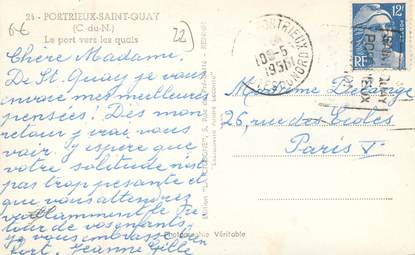 6€
22
24 - PORTRIEUX-SAINT-QUAY
(C.-du-N.)
Le port vers les quais
Chère Madame.
De St. Quay je vous
envoie mes meilleures
pensées! Dès mon
retour j'irai vous
voir. J'espère que
votre solitude n'est
pas trop pesante et
que vous attendrez
vaillamment le re
tour de vos enfants.
je vous embrasse bien
fort, Jeanne Gille
Photographie Véritable
PORTRIEUX
10 -5
1951
CÔTES DU NORD
12F
RF
Madame
26, rue des Ecoles
Paris V